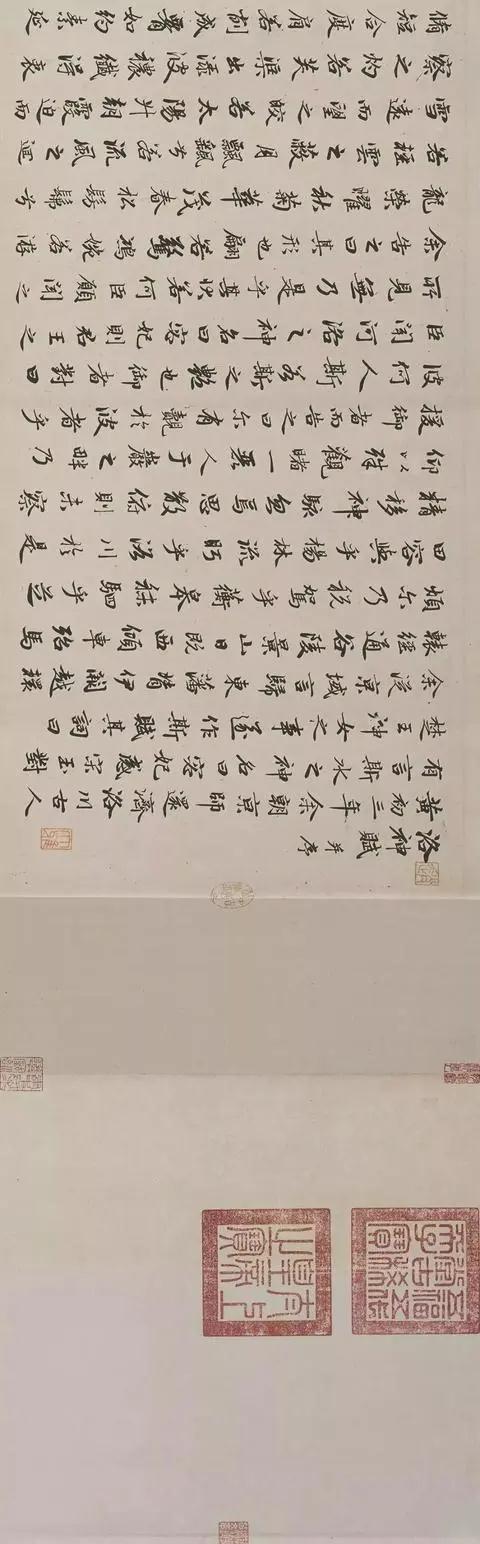 洛神賦 并序
黃初三年余朝京師還濟洛川古人
有言斯水之神名曰宓妃感宋玉對
楚王神女之事遂作斯賦其詞曰
余從京域言歸東藩背伊闕越轘
轅經通谷陵景山日既西傾車殆馬
煩尔乃税駕乎蘅皋秣駟乎芝
田容與乎楊林流眄乎洛川於是
精移神駭忽焉思散俯則未察
仰以殊觀睹一麗人于巖之畔乃
援御者而告之曰尔有覿於彼者乎
彼何人斯若斯之艷也御者對曰
臣聞河洛之神名曰宓妃則君王之
所見無乃是乎其狀若何臣願聞之
余告之曰其形也翩若驚鴻婉若游
龍榮曜秋菊華茂春松髣髴兮
若輕雲之蔽月飄飄兮若流風之迴
雪遠而望之皎若太陽升朝霞迫而
察之灼若芙蕖出淥波穠纖得衷
脩短合度肩若削成腰如約素延
五福五代堂古稀天子寶
太上皇帝之寶